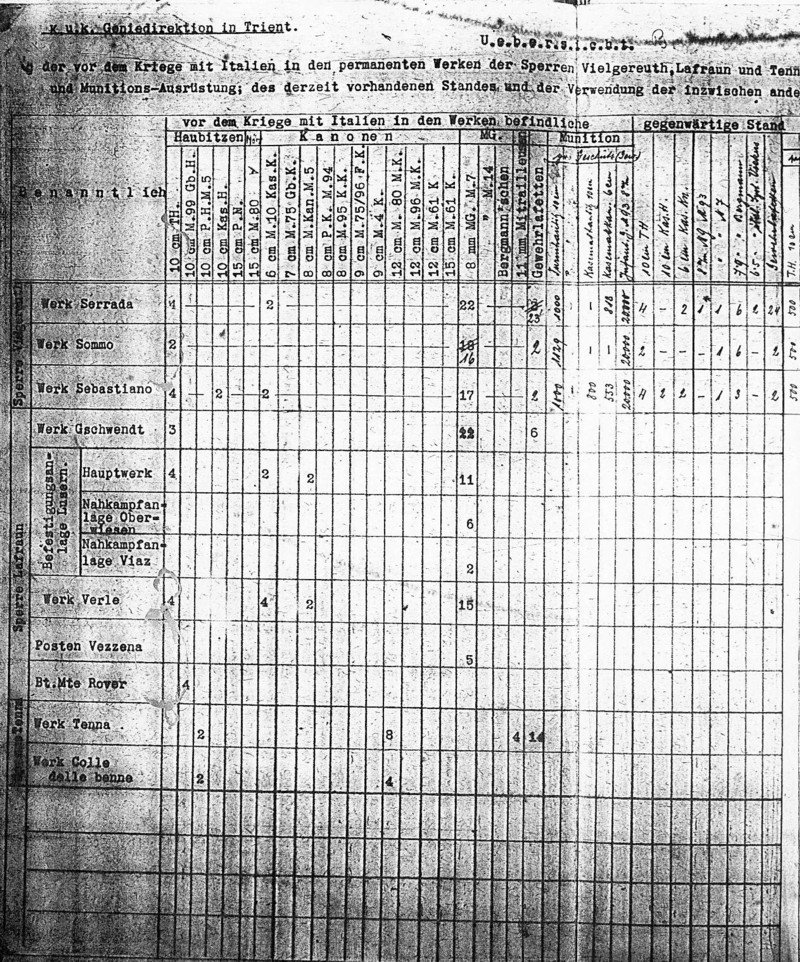 K.u.k. Geniedirektion in Trient.
U.e.b.e.r.s.i.c.h.t.
der vor dem Kriege mit Italien in den permanenten Werken der Sperren Vielgereuth, Lafraun und Tenn
und Munitions-Ausrüstung; des derzeit vorhandenen Standes und der Verwendung der inzwischen ande
vor dem Kriege mit Italien in den Werken befindliche gegenwärtige Stand
Haubitzen K a n o n e n MG. Munition
B e n a n n t l i c h
10 cm TH.
10 cm M.99 Gb.H.
10 cm P.H.M.5
10 cm Kas.H.
15 cm P.N.
15 cm M.80
6 cm M.10 Kas.K.
7 cm M.75 Gb.K.
8 cm M.Kan.M.5
8 cm P.K. M.94
8 cm M.95 K.K.
9 cm M.75/96 F.K.
9 cm M.4 K.
12 cm M. 80 M.K.
12 cm M.96 M.K.
12 cm M.61 K
15 cm M.61 K.
8 mm MG. M.7
" M.14
Bergmann'schen
11 mm Mitrailleusen
Gewehrlafetten
10 cm TH
10 cm Kas.H.
6 cm Kas. Kn.
Sperre Vielgereuth
Werk Serrada 4 2 22 23 1000 - 818 20000 4 - 2 1 1 6 2 24 500
Werk Sommo 2 18 16 2 1129 - - 20000 2 - - - 1 6 - 2 500
Werk Sebastiano 4 2 2 17 2 1000 800 553 20000 4 2 2 - 1 3 - 2 500
Sperre Lafraun
Werk Gschwendt 3 22 6
Befestigungsan-
lage Lusern.
Hauptwerk 4 2 2 11
Nahkampfan-
lage Ober-
wiesen 6
Nahkampfan-
lage Viaz 2
Werk Verle 4 4 2 15
Posten Vezzena 5
Bt.Mte Rover 4
Werk Tenna 2 8 4 14
Werk Colle
delle benne 2 4